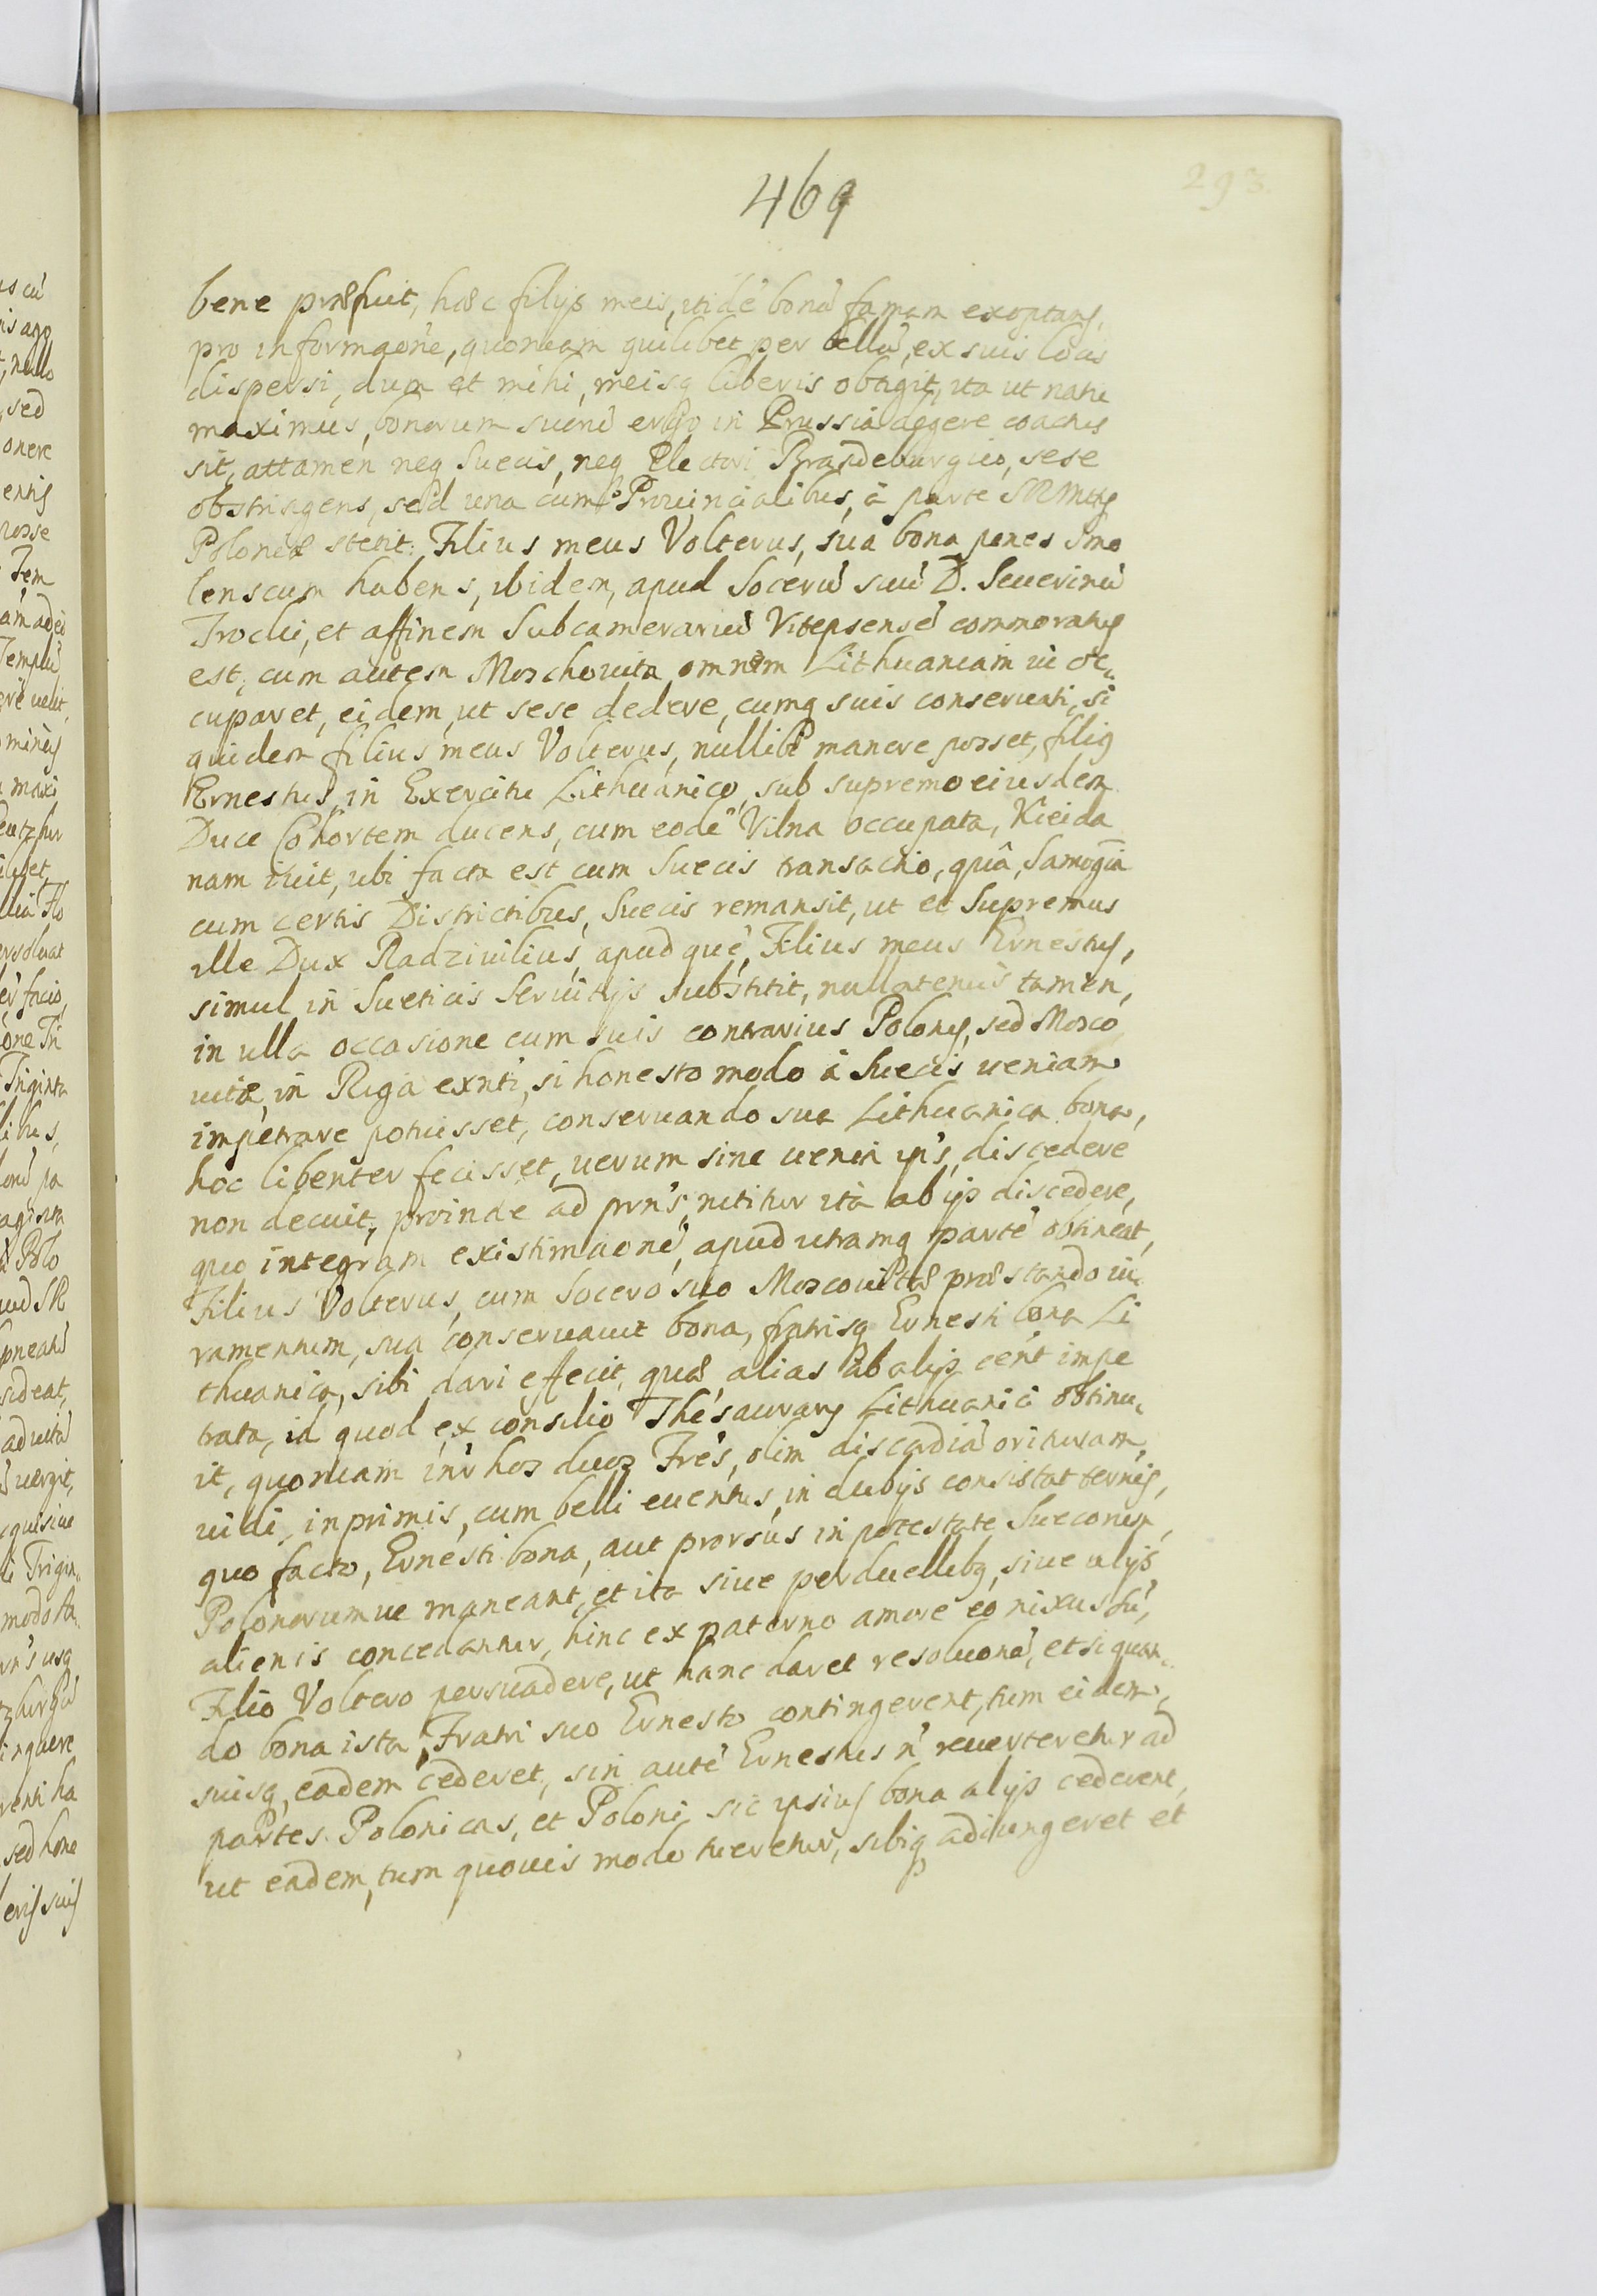 469
293.
bene præfuit, hæc filijs meis, itidẽ bonã famam exoptans,
pro informaoñe, quoniam quilibet per bellũ, ex suis locis
dispersi, dum et mihi, meisq liberis obtigit, ita ut natu
maximus, bonorum suorũ ergo in Prussia degere coactus
sit, attamen neq Suecis, neq Electori Brandeburgico, sese
obstringens, sed una cum Prouincialibus, à parte SRMttis
Poloniæ stetit: Filius meus Volterus, sua bona penes Smo
lenscum habens, ibidem, apud Socerũ suũ D. Seuerinũ
Trocki, et affinem Subcamerariũ Vitepsensẽ commoratus
est, cum autem Moschouita omnem Lithuaniam ui oc¬
cuparet, eidem, ut sese dedere, cumq suis conseruati, si
quidem filius meus Volterus, nullibi manere posset, filius
Ernestus, in Exercitu Lithuanico, sub supremo eiusdem
Duce Cohortem ducens, cum eodẽ Vilna occupata, Kieida
nam iuit, ubi facta est cum Suecis transactio, quâ, Samogĩa
cum certis Districtibus, Suecis remansit, ut et Supremus
ille Dux Radziuilius, apud quẽ, Filius meus Ernestus,
simul in Sueticis Seruitijs substitit, nullatenus tamen,
in ulla occasione cum suis contrarius Polonis, sed Mosco
uitæ, in Riga exnti, si honesto modo à Suecis ueniam
impetrare potuisset, conseruando sua Lithuanica bona,
hoc libenter fecisset, uerum sine uenia ips, discedere
non decuit, proinde ad prns, nititur ita ab ijs discedere,
quo integram existimaonẽ, apud utramq partẽ obtineat,
Filius Volterus, cum Socero suo Moscouitæ præstando iu¬
ramentum, sua conseruauit bona, fratrisq Ernesti bona Li
thuanica, sibi dari effecit, quæ alias ab alijs eẽnt impe
trata, id quod ex consilio Thesaurarij Lithuaniæ obtinu¬
it, quoniam inr hos duos Fres, olim discordiã orituram,
uidi, inprimis, cum belli euentus, in dubijs consistat terminis,
quo facto, Ernesti bona, aut prorsus in potestate Suecorum,
Polonorumue maneant, et ita siue perduellibus, siue alijs
alienis concedantur, hinc ex paterno amore eò nixus sũ,
Filio Voltero persuadere, ut hanc daret resoluonẽ, et si quan¬
do bona ista, Fratri suo Ernesto contingerent, tum eidem,
suisq, eadem cederet, sin autẽ Ernestus ñ reuerteretur ad
partes Polonicas, et Poloni sic ipsius bona alijs cederent,
ut eadem, tum quouis modo tueretur, sibiq adiungeret et